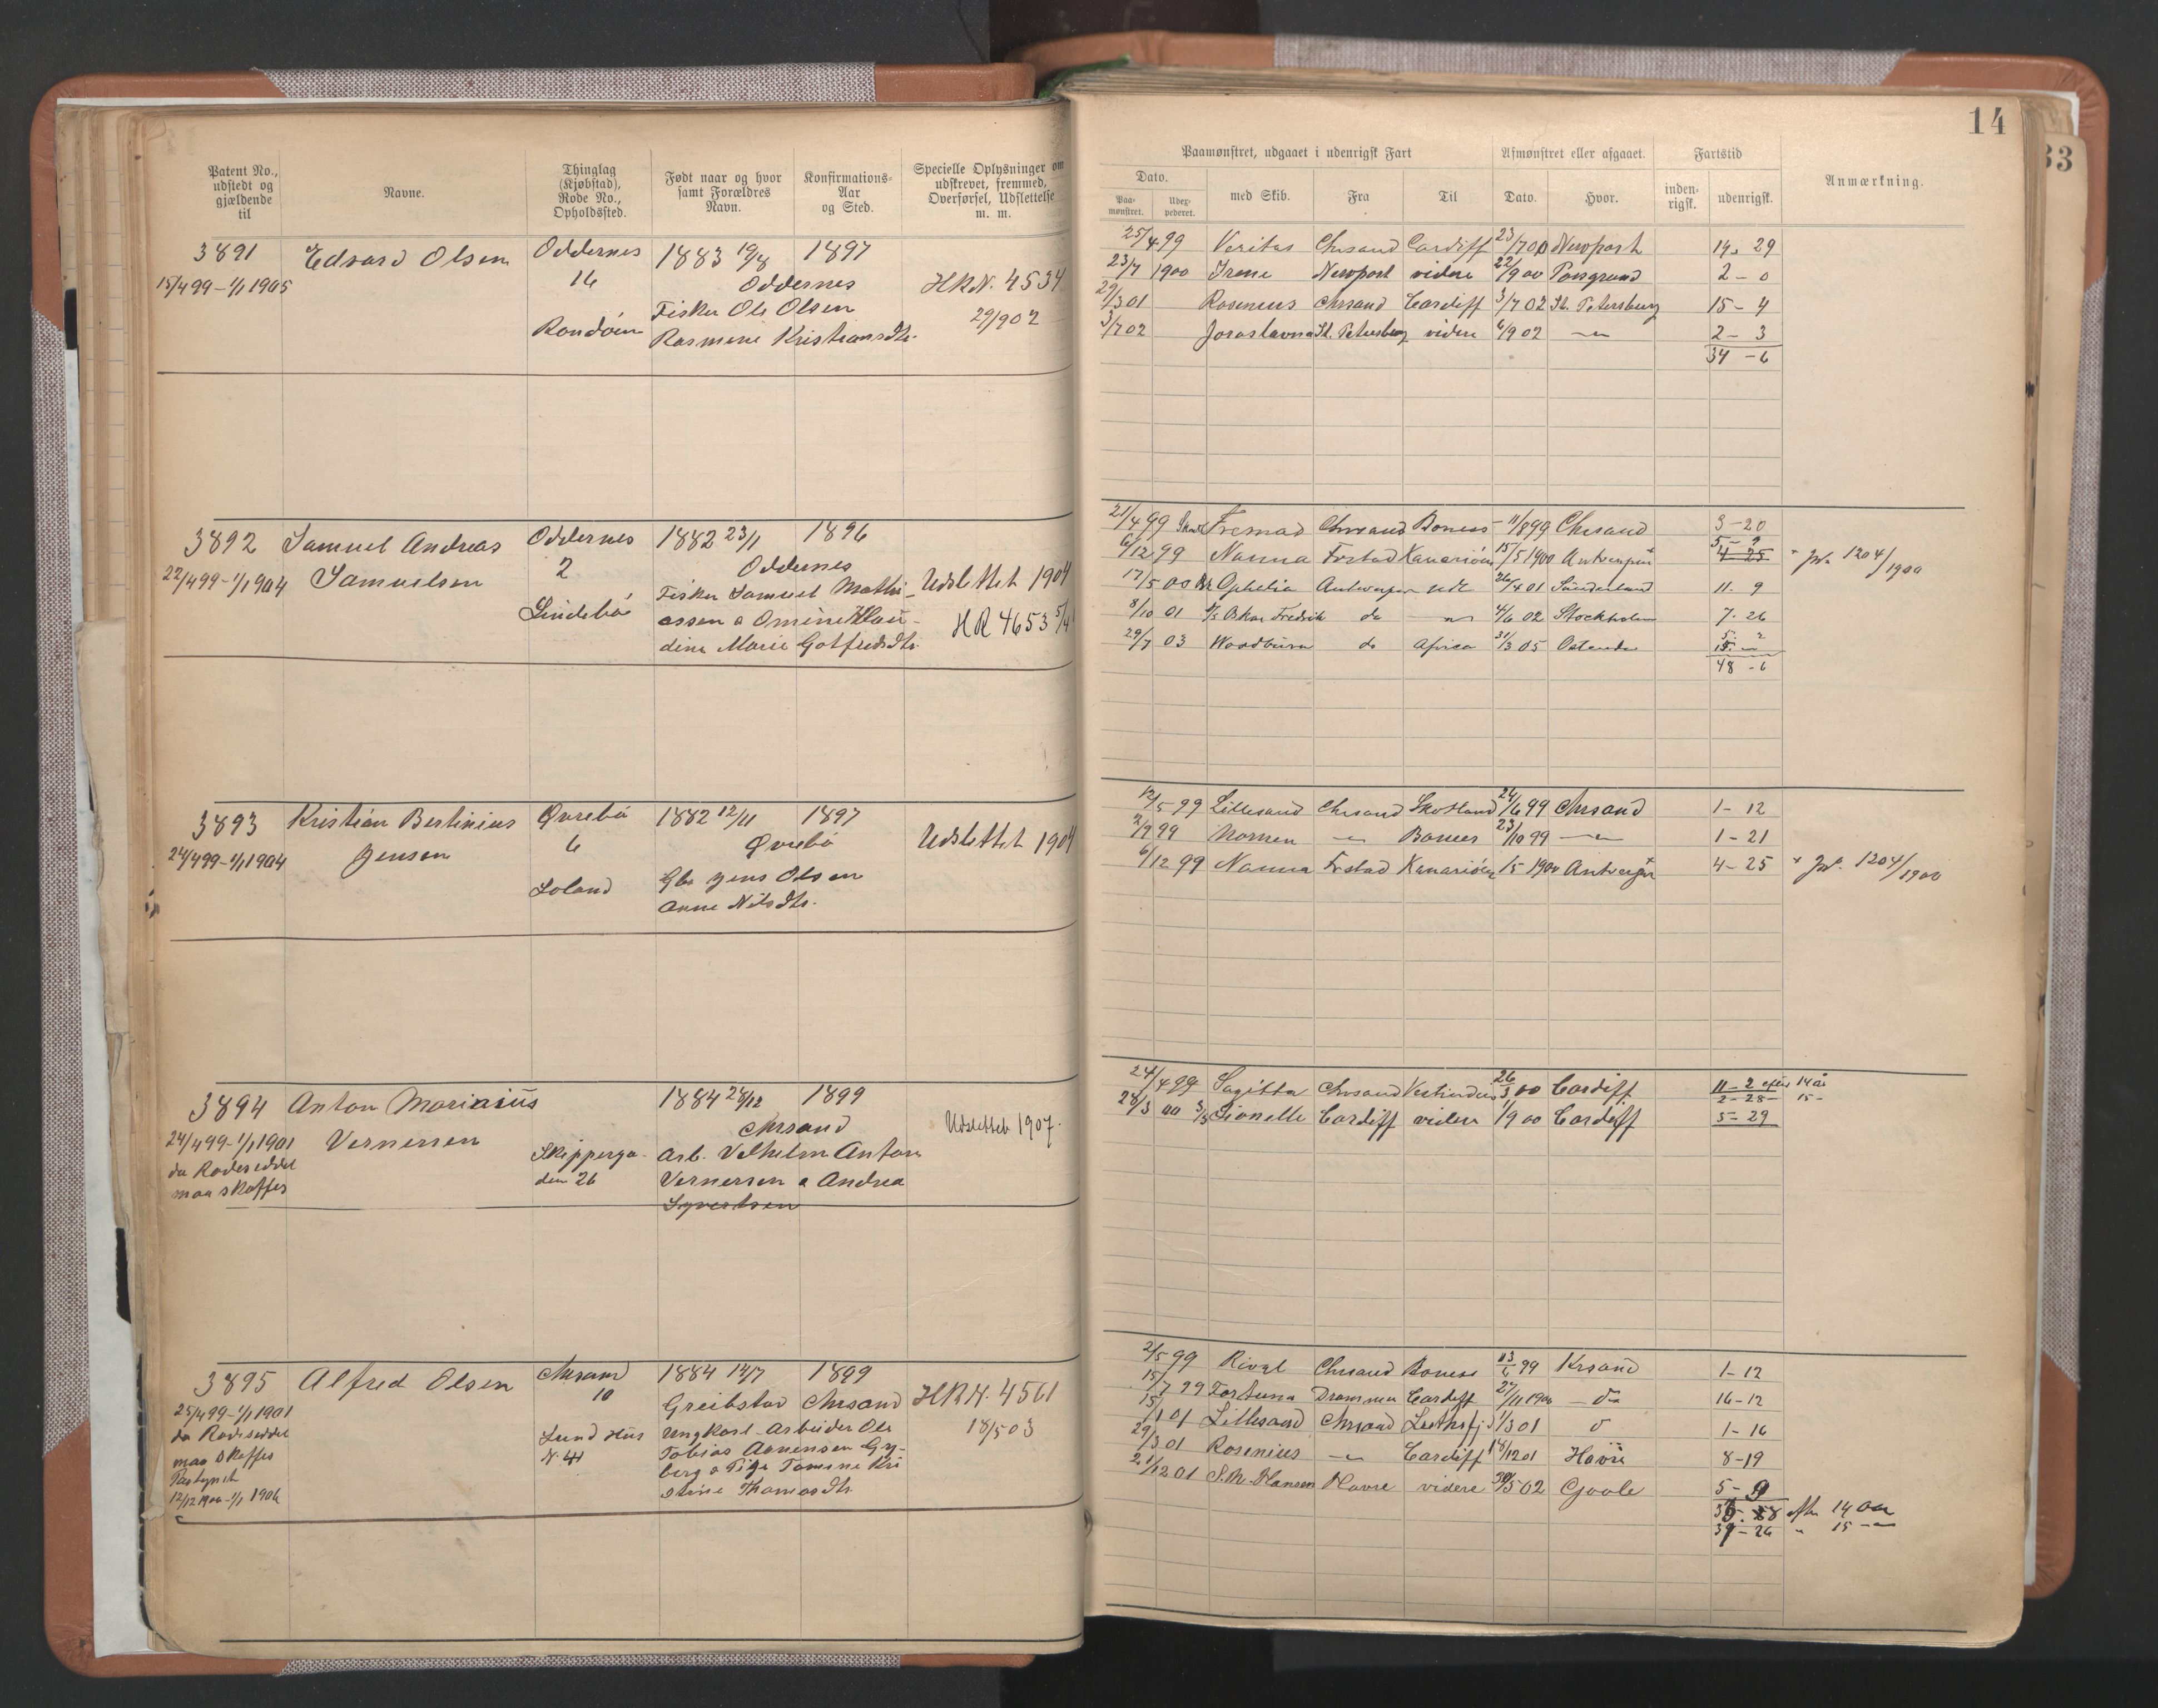 14
33
Patent No., udstedt og gjældende til
Navne.
Thinglag (Kjøbstad), Rode No., Opholdssted.
Født naar og hvor samt Forældres Navn.
Konfirmations-Aar og Sted.
Specielle Oplysninger om udskrevet, fremmed, Overførsel, Udslettelse m. m.
Paamønstret, udgaaet i udenrigsk Fart
Afmønstret eller afgaaet.
Fartstid
Anmærkning.
Dato.
med Skib.
Fra
Til
Dato.
Hvor.
inden-rigsk.
udenrigsk.
Paa-mønstret.
Udex-pederet.
3891 Edvard Olsen Oddernes 1883 19/8 1897
15/4 99-1/1 1905 16 Oddernes HRN. 4534
Fisker Ole Olsen 29/9 02
Randøen Rasmine Kristiansdtr.
25/4 99 Veritas Chrsand Cardiff 23/7 00 Newport 14. 29
23/7 1900 Irene Newport videre 22/9 00 Porsgrund 2 - 0
29/3 01 Rosenius Chrsand Cardiff 3/7 02 St. Petersburg 15 - 4
3/7 02 Jaroslavna St. Petersburg videre 6/9 02 —"— 2 - 3
34 - 6
3892 Samuel Andreas Oddernes 1882 23/1 1896
22/4 99-1/1 1904 Samuelsen 2 Oddernes Udslettet 1904
Fisker Samuel Mathi-
Lindebø assen & Omine Klau- HR 4653 5/4
dine Marie Gotfredsdtr.
21/4 99 Fremad Chrsand Boness 11/8 99 Chrsand 3-20
6/12 99 Nanna Frstad Kanariøen 15/5 1900 Antwerpen 5-9
4-25 Jr. 1204/1900
17/5 00 Ophelia Antwerpen 26/4 01 Sunderland 11. 9
8/10 01 Oskar Fredrik do —"— 4/6 02 Stockholm 7. 26
29/7 03 Woodburn do Africa 31/3 05 Ostende
48 - 6
3893 Kristian Bertinius Øvrebø 1882 12/11 1897
24/4 99-1/1 1904 Jensen 6 Øvrebø Udslettet 1904
Loland Gbr Jens Olsen
Anne Nilsdtr.
12/5 99 Lillesand Chrsand Skotland 24/6 99 Chrsand 1-12
2/9 99 Nornen —"— Boness 23/10 99 —"— 1-21
6/12 99 Nanna Frstad Kanariøen 15 1900 Antwerpen 4-25 Jr. 1204/1900
3894 Anton Mariasius 1884 24/12 1899
24/4 99-1/1 1901 Vernersen Chrsand Udslettet 1907.
da Rodeseddel Skipperga- Arb. Vilhelm Anton
maa skaffes den 26 Vernersen & Andrea
Syvertsen
24/4 99 Sagitta Chrsand Vestindien 26/3 00 Cardiff 11-2 efter 14 år
2-28- 15-
28/3 00 Lionelle Cardiff videre 1/9 00 Cardiff 5-29
3895 Alfred Olsen Chrsand 1884 14/7 1899
25/4 99-1/1 1901 10 Greibstad Chrsand HRN. 4561
da Rodeseddel Lund Hus Ungkarl-Arbeider Ole 18/5 03
maa skaffes N. 41 Tobias Aanensen Gy-
berg & Pige Tomine Kri-
12/12 1900-1/1 1906 stine Thomasdtr.
2/5 99 Rival Chrsand Boness 13/6 99 Krsand 1-12
15/7 99 Fortuna Drammen Cardiff 27/11 1900 do 16-12
15/1 01 Lillesand Chrsand 1/3 01 do 1-16
29/3 01 Rosenius —"— Cardiff 18/12 01 Havre 8-19
21/12 01 S. M. Hansen Havre videre 30/5 02 Goole 5-9
efter 14 aar
39-26 " 15 —"—